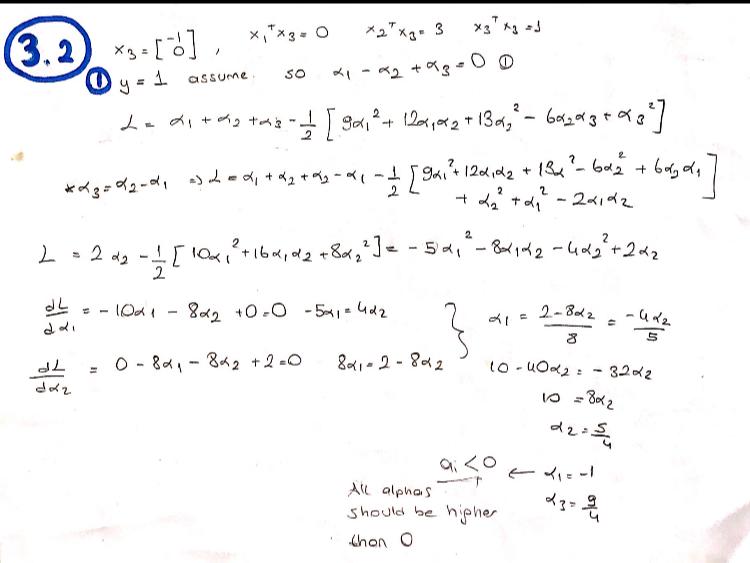 3.2
x₃ = [-1 0], x₁ᵀx₃ = 0 x₂ᵀx₃ = 3 x₃ᵀx₃ = 1
① y = 1 assume. so α₁ - α₂ + α₃ = 0 ①
L = α₁ + α₂ + α₃ - 1/2 [9α₁² + 12α₁α₂ + 13α₂² - 6α₂α₃ + α₃²]
*α₃ = α₂ - α₁ ⇒ L = α₁ + α₂ + α₂ - α₁ - 1/2 [9α₁² + 12α₁α₂ + 13α² - 6α₂² + 6α₂α₁
+ α₂² + α₁² - 2α₁α₂]
L = 2α₂ - 1/2 [10α₁² + 16α₁α₂ + 8α₂²] = -5α₁² - 8α₁α₂ - 4α₂² + 2α₂
dL/dα₁ = -10α₁ - 8α₂ + 0 = 0 -5α₁ = 4α₂
dL/dα₂ = 0 - 8α₁ - 8α₂ + 2 = 0 8α₁ = 2 - 8α₂
} α₁ = (2 - 8α₂)/8 = -4α₂/5
10 - 40α₂ = -32α₂
10 = 8α₂
α₂ = 5/4
aᵢ < 0 ← α₁ = -1
α₃ = 9/4
All alphas
should be higher
than 0